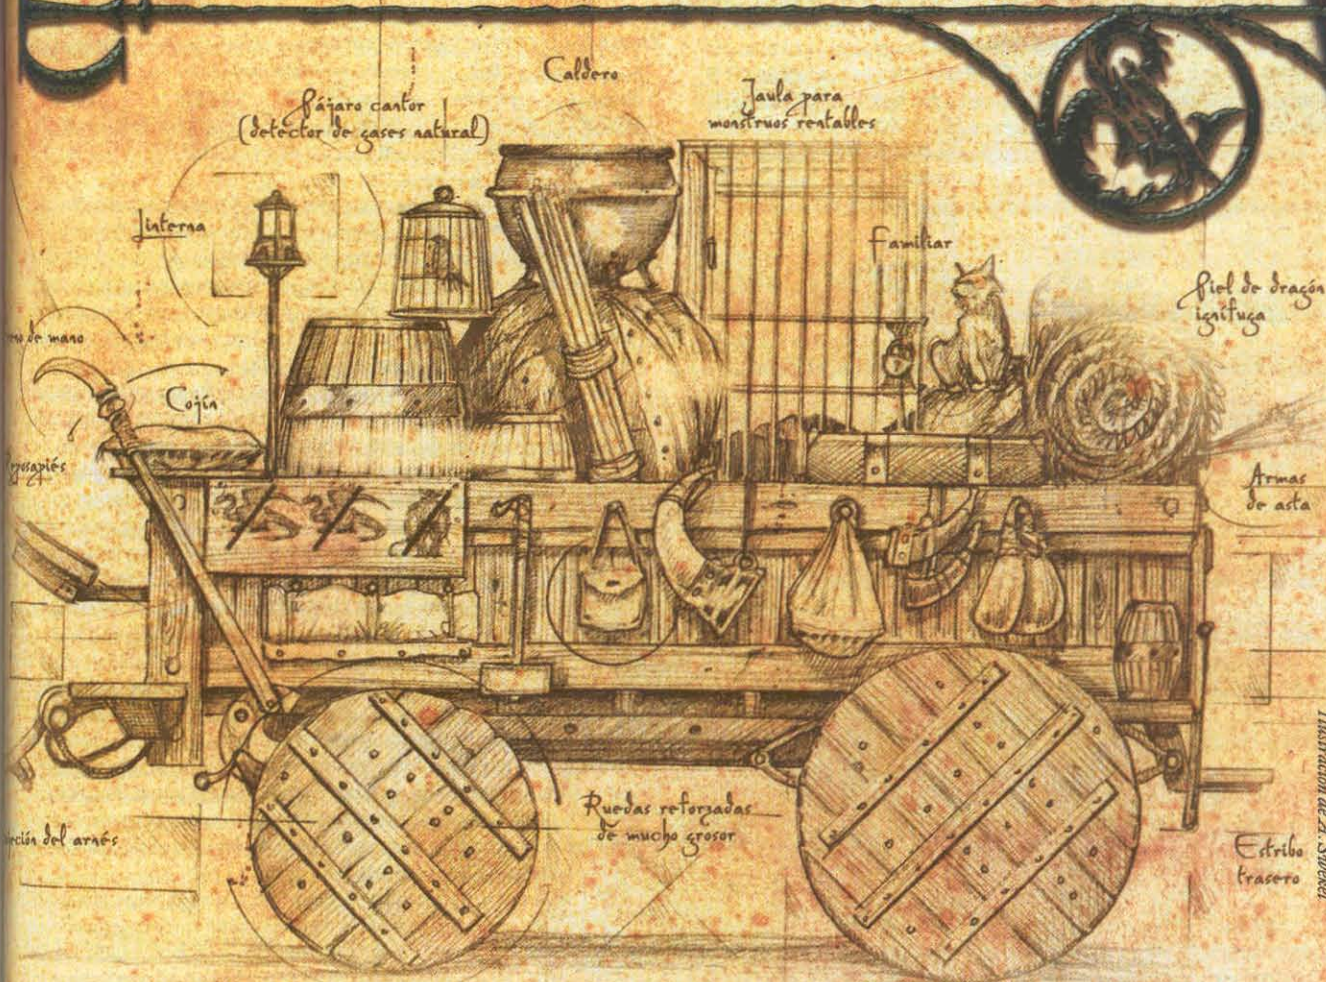 Caldero
Pájaro cantor
(detector de gases natural)
Jaula para
monstruos rentables
Linterna
Familiar
Piel de dragón
ignífuga
de mano
Cojín
Armas
de asta
Ruedas reforzadas
de mucho grosor
del arnés
Estribo
trasero
Ilustración de A. Swekel